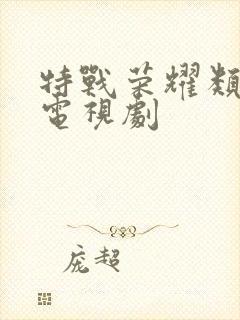 特戰荣耀類
電視劇
庞超